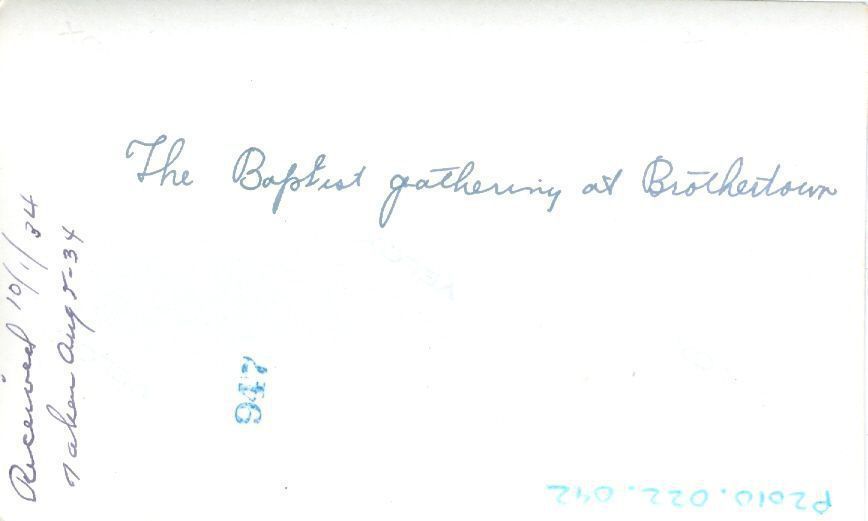 The Baptist gathering at Brothertown
Received 10/1/34
Taken Aug 5-34
947
P2010.022.042